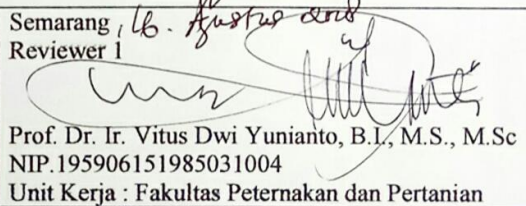 Semarang, 16. Agustus 2018
Reviewer 1
Prof. Dr. Ir. Vitus Dwi Yunianto, B.I., M.S., M.Sc
NIP.195906151985031004
Unit Kerja : Fakultas Peternakan dan Pertanian